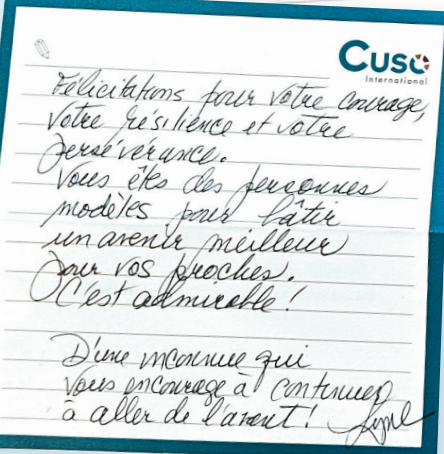 Cuso
International
Félicitations pour votre courage,
votre résilience et votre
persévérance.
Vous êtes des personnes
modèles pour bâtir
un avenir meilleur
pour vos proches.
C'est admirable !
D'une inconnue qui
vous encourage à continuer
à aller de l'avant !